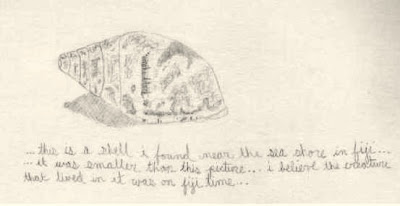 ...this is a shell i found near the sea shore in fiji...
...it was smaller than this picture... i believe the creature
that lived in it was on fiji time...